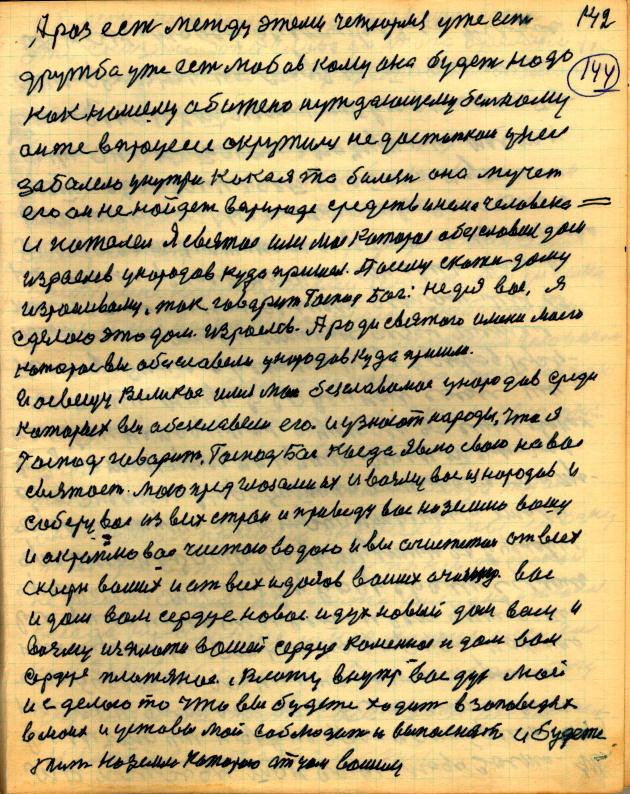 А раз ест между этеми четырмя уже ест 142
дружба уже ест любов кому она будет надо 144
как нашему абижено нуждающему больному
он же в природе окружили недостатки у нее
забалело унутри какая то болезн она мучет
его он не найдет в природе средств и нема человека =
И пожалел Я святое имя мое которое абесславил дом
израелев у народов куда пришел. Посему скажи дому
израилвому, так говарит Господ Бог: не для вас, Я
сделаю это дом. израелов. А ради святого имени моего
которое вы абесславели у народов куда пришли.
И освещу Великое имя мое безславимое у народов среди
каторых вы абесславели его. и узнают народы, что я
Господ говарит, Господ Бог когда явлю свою на вас
святост. мою пред глазами их и возму вас из народов и
саберу вас из всих стран и приведу вас на землю вашу
и акраплю вас чистою водою и вы ачиститес от всех
скверн ваших и от всех идолов ваших ачищу вас
и дам вам сердце новае и дух новый дам вам и
возму из плоти вашей сердце каменнае и дам вам
сердце плотяное. Вложу внутр вас дух мой
и сделаю то что вы будете ходит в заповедях
в моих и уставы мои саблюдат и выполнят и будете
жит на земле каторою отцам вашим